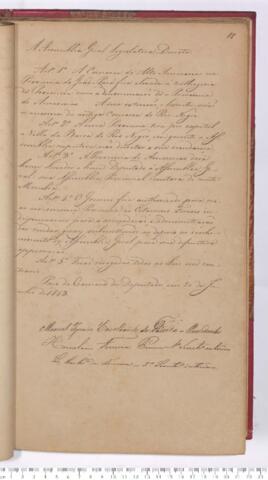 A Assemblea Geral Legislativa Decreta
Art. 1º A Comarca do Alto Amazonas na
Provincia do Grão Pará fica elevada á cathegoria
de Provincia com a denominação de Provincia
do Amazonas. A sua extensão, e limites serão
os mesmos da antiga comarca do Rio Negro
Art. 2º A nova Provincia terá por capital
a Villa da Barra do Rio Negro, em quanto a As
semblea respectiva não decretar a sua mudança.
Art. 3º A Provincia do Amazonas dará
hum Senador e hum Deputado á Assemblea Ge
ral; sua Assemblea Provincial constará de vinte
Membros.
Art. 4º O Governo fica autorisado para
crear na mesma Provincia as Estações Fiscaes in
dispensaveis para a arrecadação e administração
das rendas geraes, submettendo-as depois ao conhe
cimento da Assemblea Geral para sua definitiva
approvação.
Art. 5º Ficão revogadas todas as Leis em
contrario.
Paço da Camara dos Deputados em 20 de Ju
nho de 1843
Manoel Ignacio Cavalcanti de Lacerda Presidente
Ferreira Penna 1º Secretario
2º Secretario